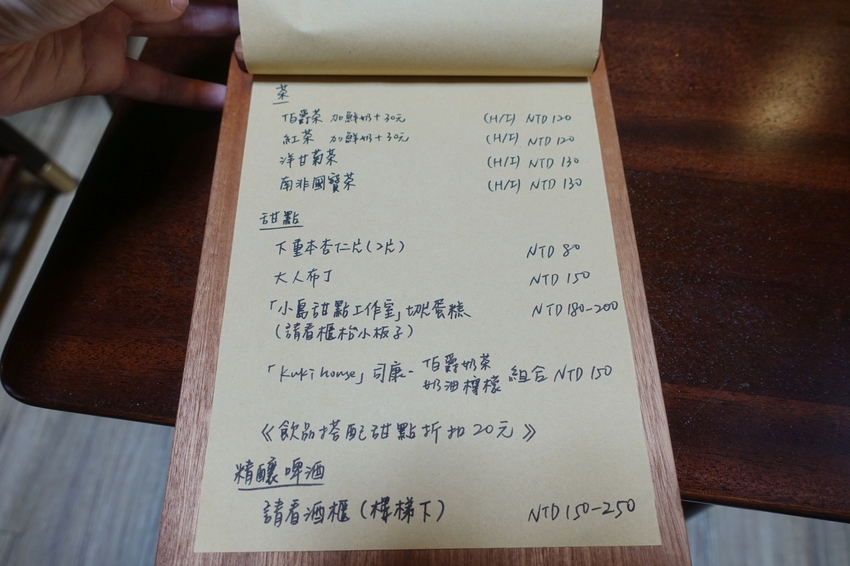 茶
伯爵茶 加鮮奶+30元 (H/I) NTD 120
紅茶 加鮮奶+30元 (H/I) NTD 120
洋甘菊茶 (H/I) NTD 130
南非國寶茶 (H/I) NTD 130
甜點
下重本杏仁片(2片) NTD 80
大人布丁 NTD 150
「小島甜點工作室」切片蛋糕 NTD 180-200
(請看櫃枱小板子)
「Kuki house」司康- 伯爵奶茶
奶油檸檬 組合 NTD 150
《飲品搭配甜點折扣20元》
精釀啤酒
請看酒櫃(樓梯下) NTD 150-250